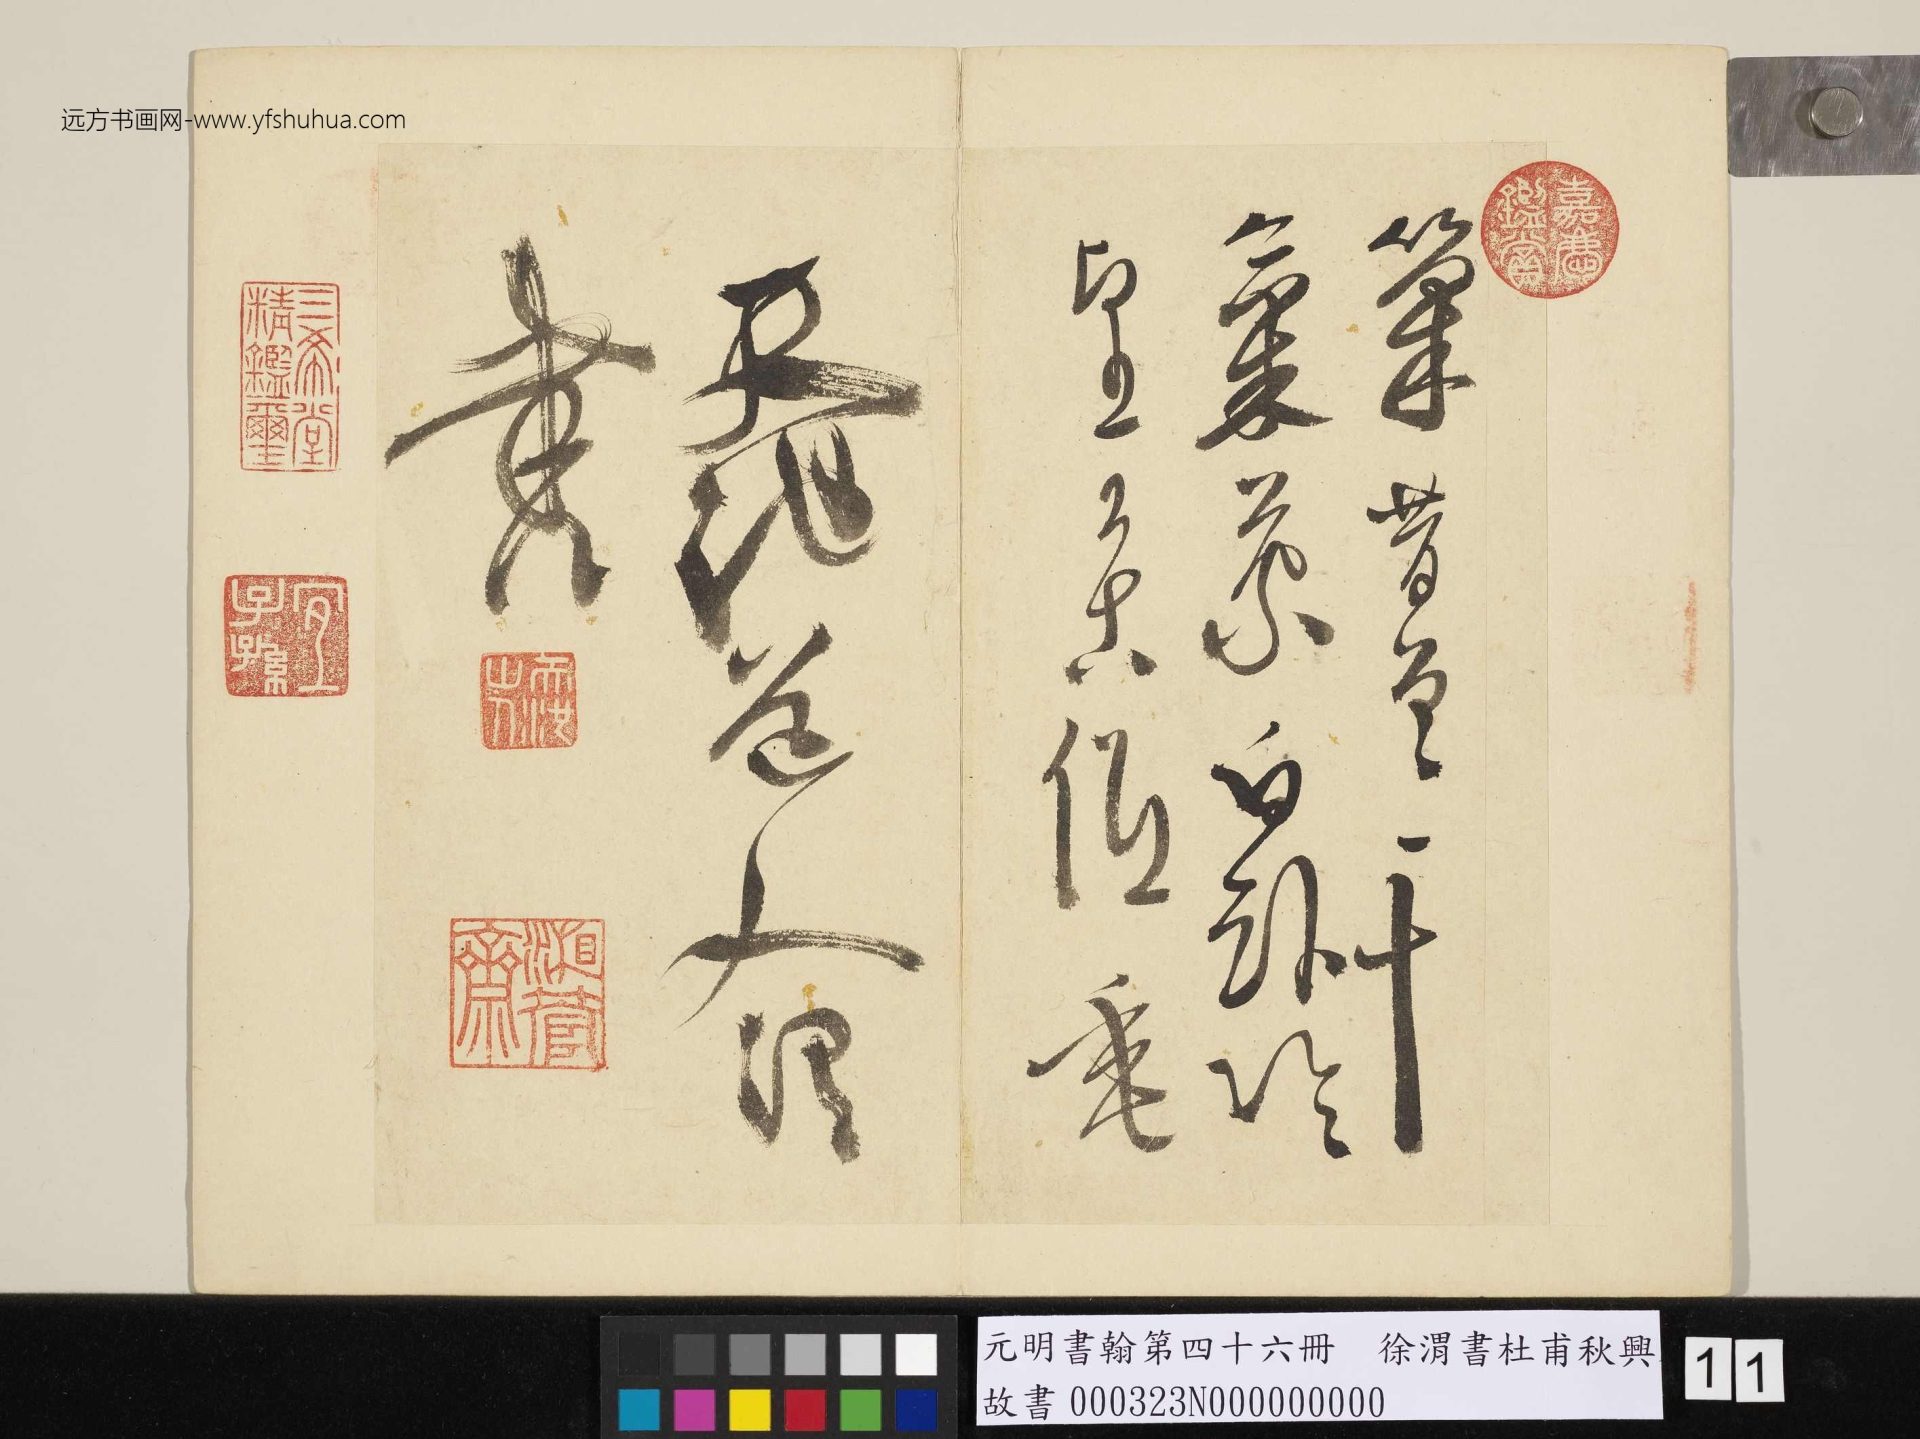 远方书画网-www.yfshuhua.com
嘉慶鑑賞
筆昔曾干
氣象白頭吟
望苦低垂
天池道人渭
書
湘管齋
三希堂
精鑑璽
宜
子孫
元明書翰第四十六冊　徐渭書杜甫秋興
故書000323N000000000
11